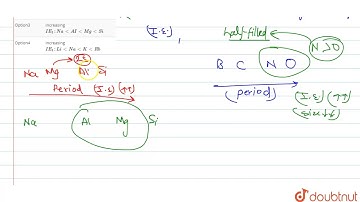 Option3 increasing
IE₁: Na < Al < Mg < Si
Option4 increasing
IE₁: Li < Na < K < Rb
(I.E)
half-filled
N > O
(I.E)
Na Mg Al Si
B C N O
Period (I.E) (↑↑)
(period) (I.E) (↑↑)
(size ↓↓)
Na Al Mg Si
doubtnut